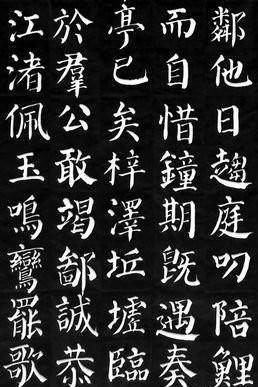 鄰他日趨庭叨陪鯉
而自惜鐘期既遇奏
亭已矣梓澤坵墟臨
於羣公敢竭鄙誠恭
江渚佩玉鳴鸞罷歌